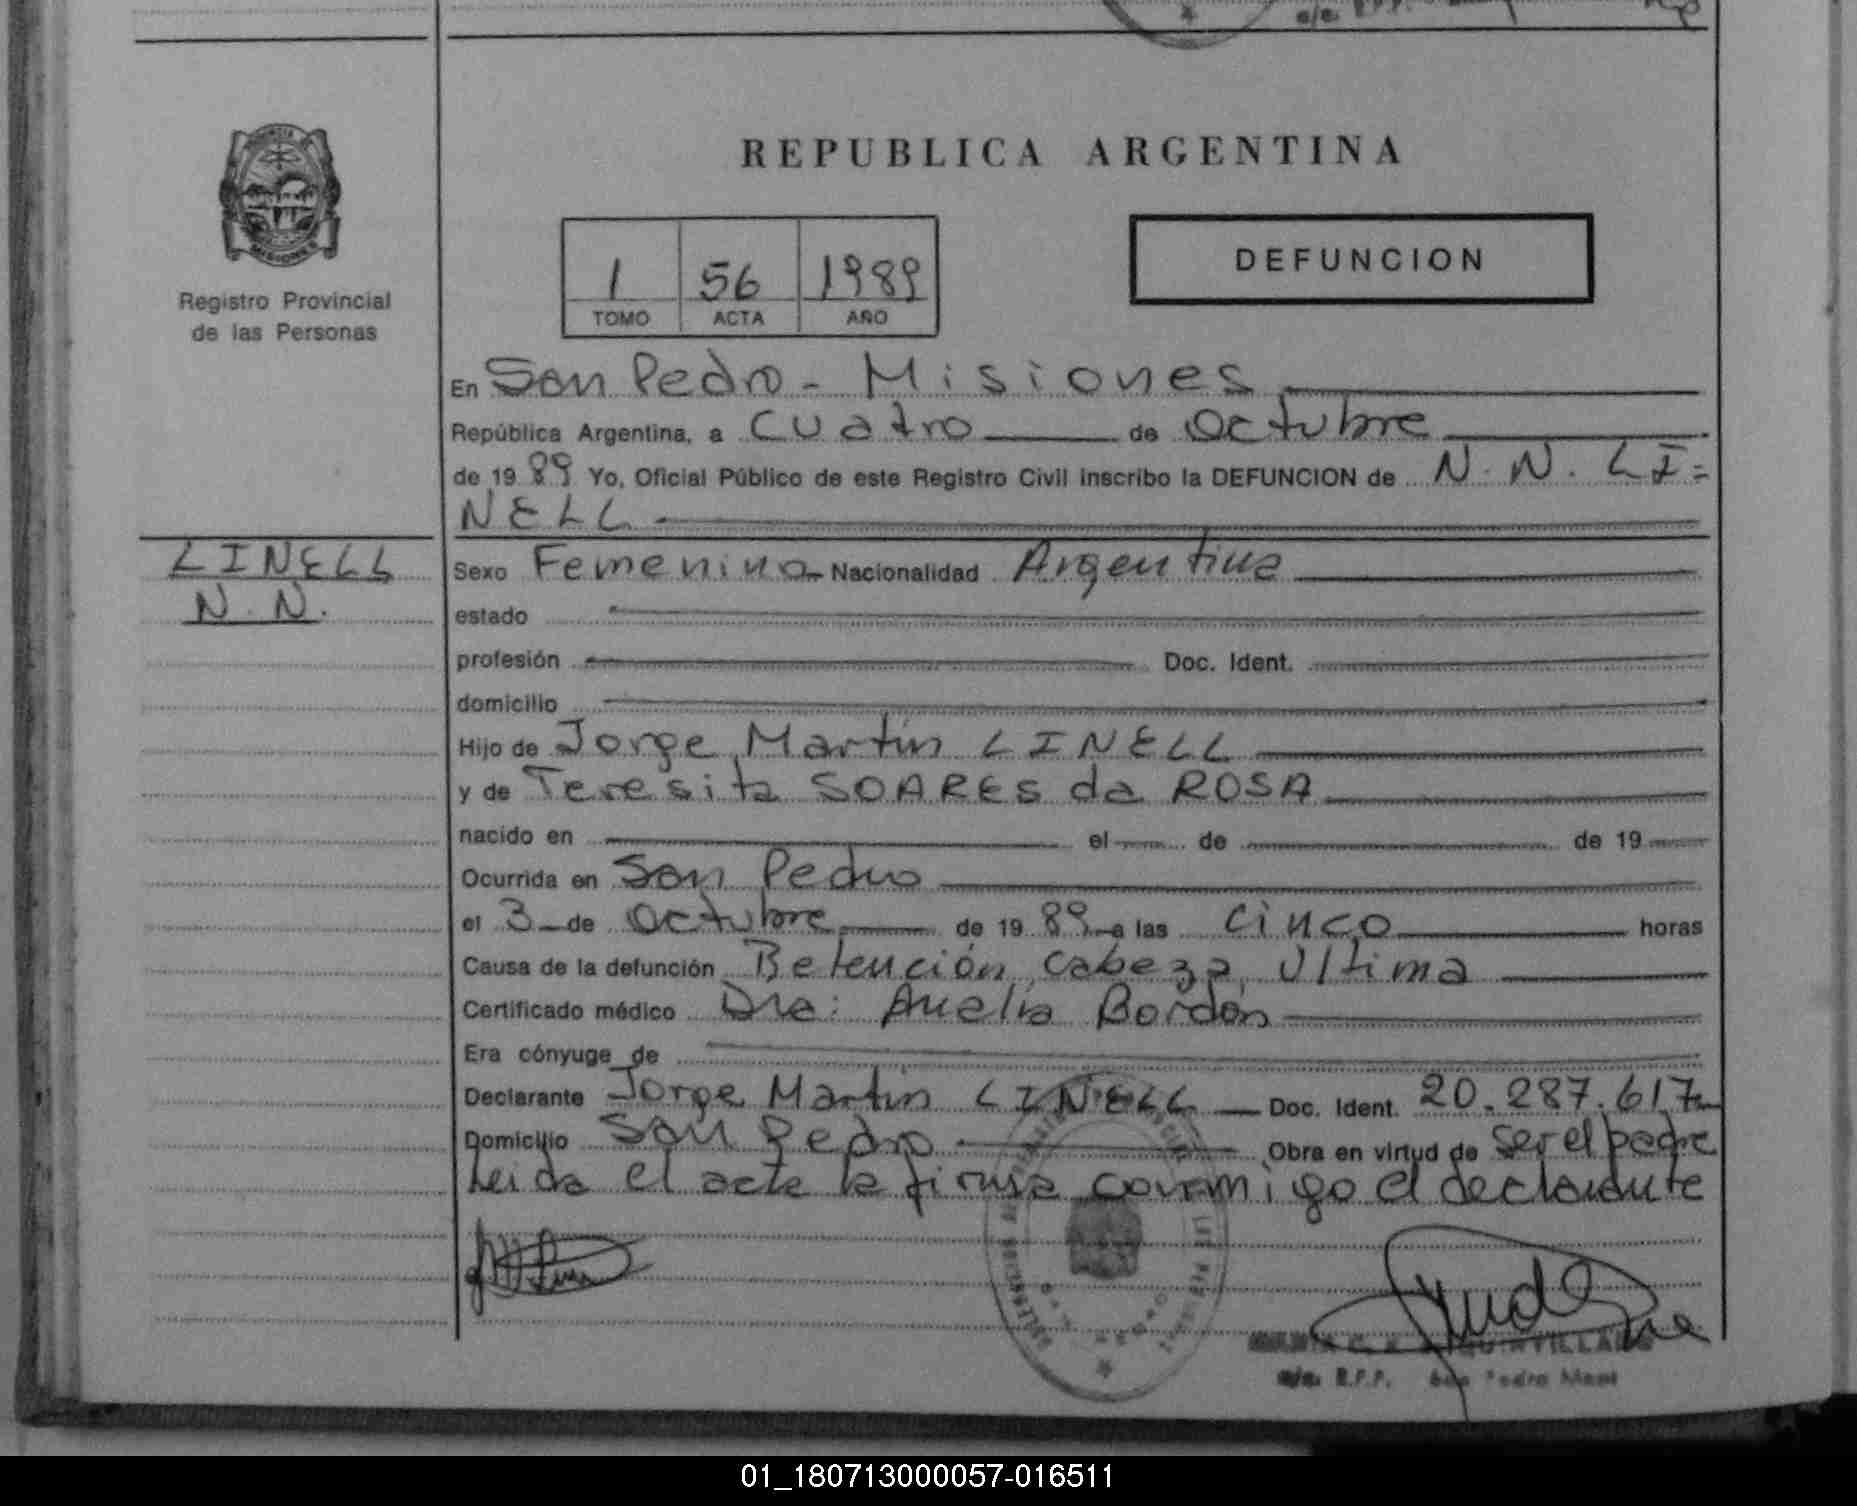 REPUBLICA ARGENTINA
Registro Provincial
de las Personas
1 56 1989
TOMO ACTA AÑO
DEFUNCION
En San Pedro - Misiones
República Argentina, a cuatro de Octubre
de 1989 Yo, Oficial Público de este Registro Civil inscribo la DEFUNCION de N. N. LI=
NELL
LINELL
N. N.
Sexo Femenino Nacionalidad Argentina
estado
profesión Doc. Ident.
domicilio
Hijo de Jorge Martin LINELL
y de Teresita SOARES da ROSA
nacido en el de de 19
Ocurrida en San Pedro
el 3 de Octubre de 1989 a las cinco horas
Causa de la defunción Retención cabeza última
Certificado médico Dra: Amelia Bordón
Era cónyuge de
Declarante Jorge Martin LINELL Doc. Ident. 20.287.617
Domicilio San Pedro Obra en virtud de ser el padre
Leida el acta la firma conmigo el declarante
R.P.P. San Pedro
01_180713000057-016511